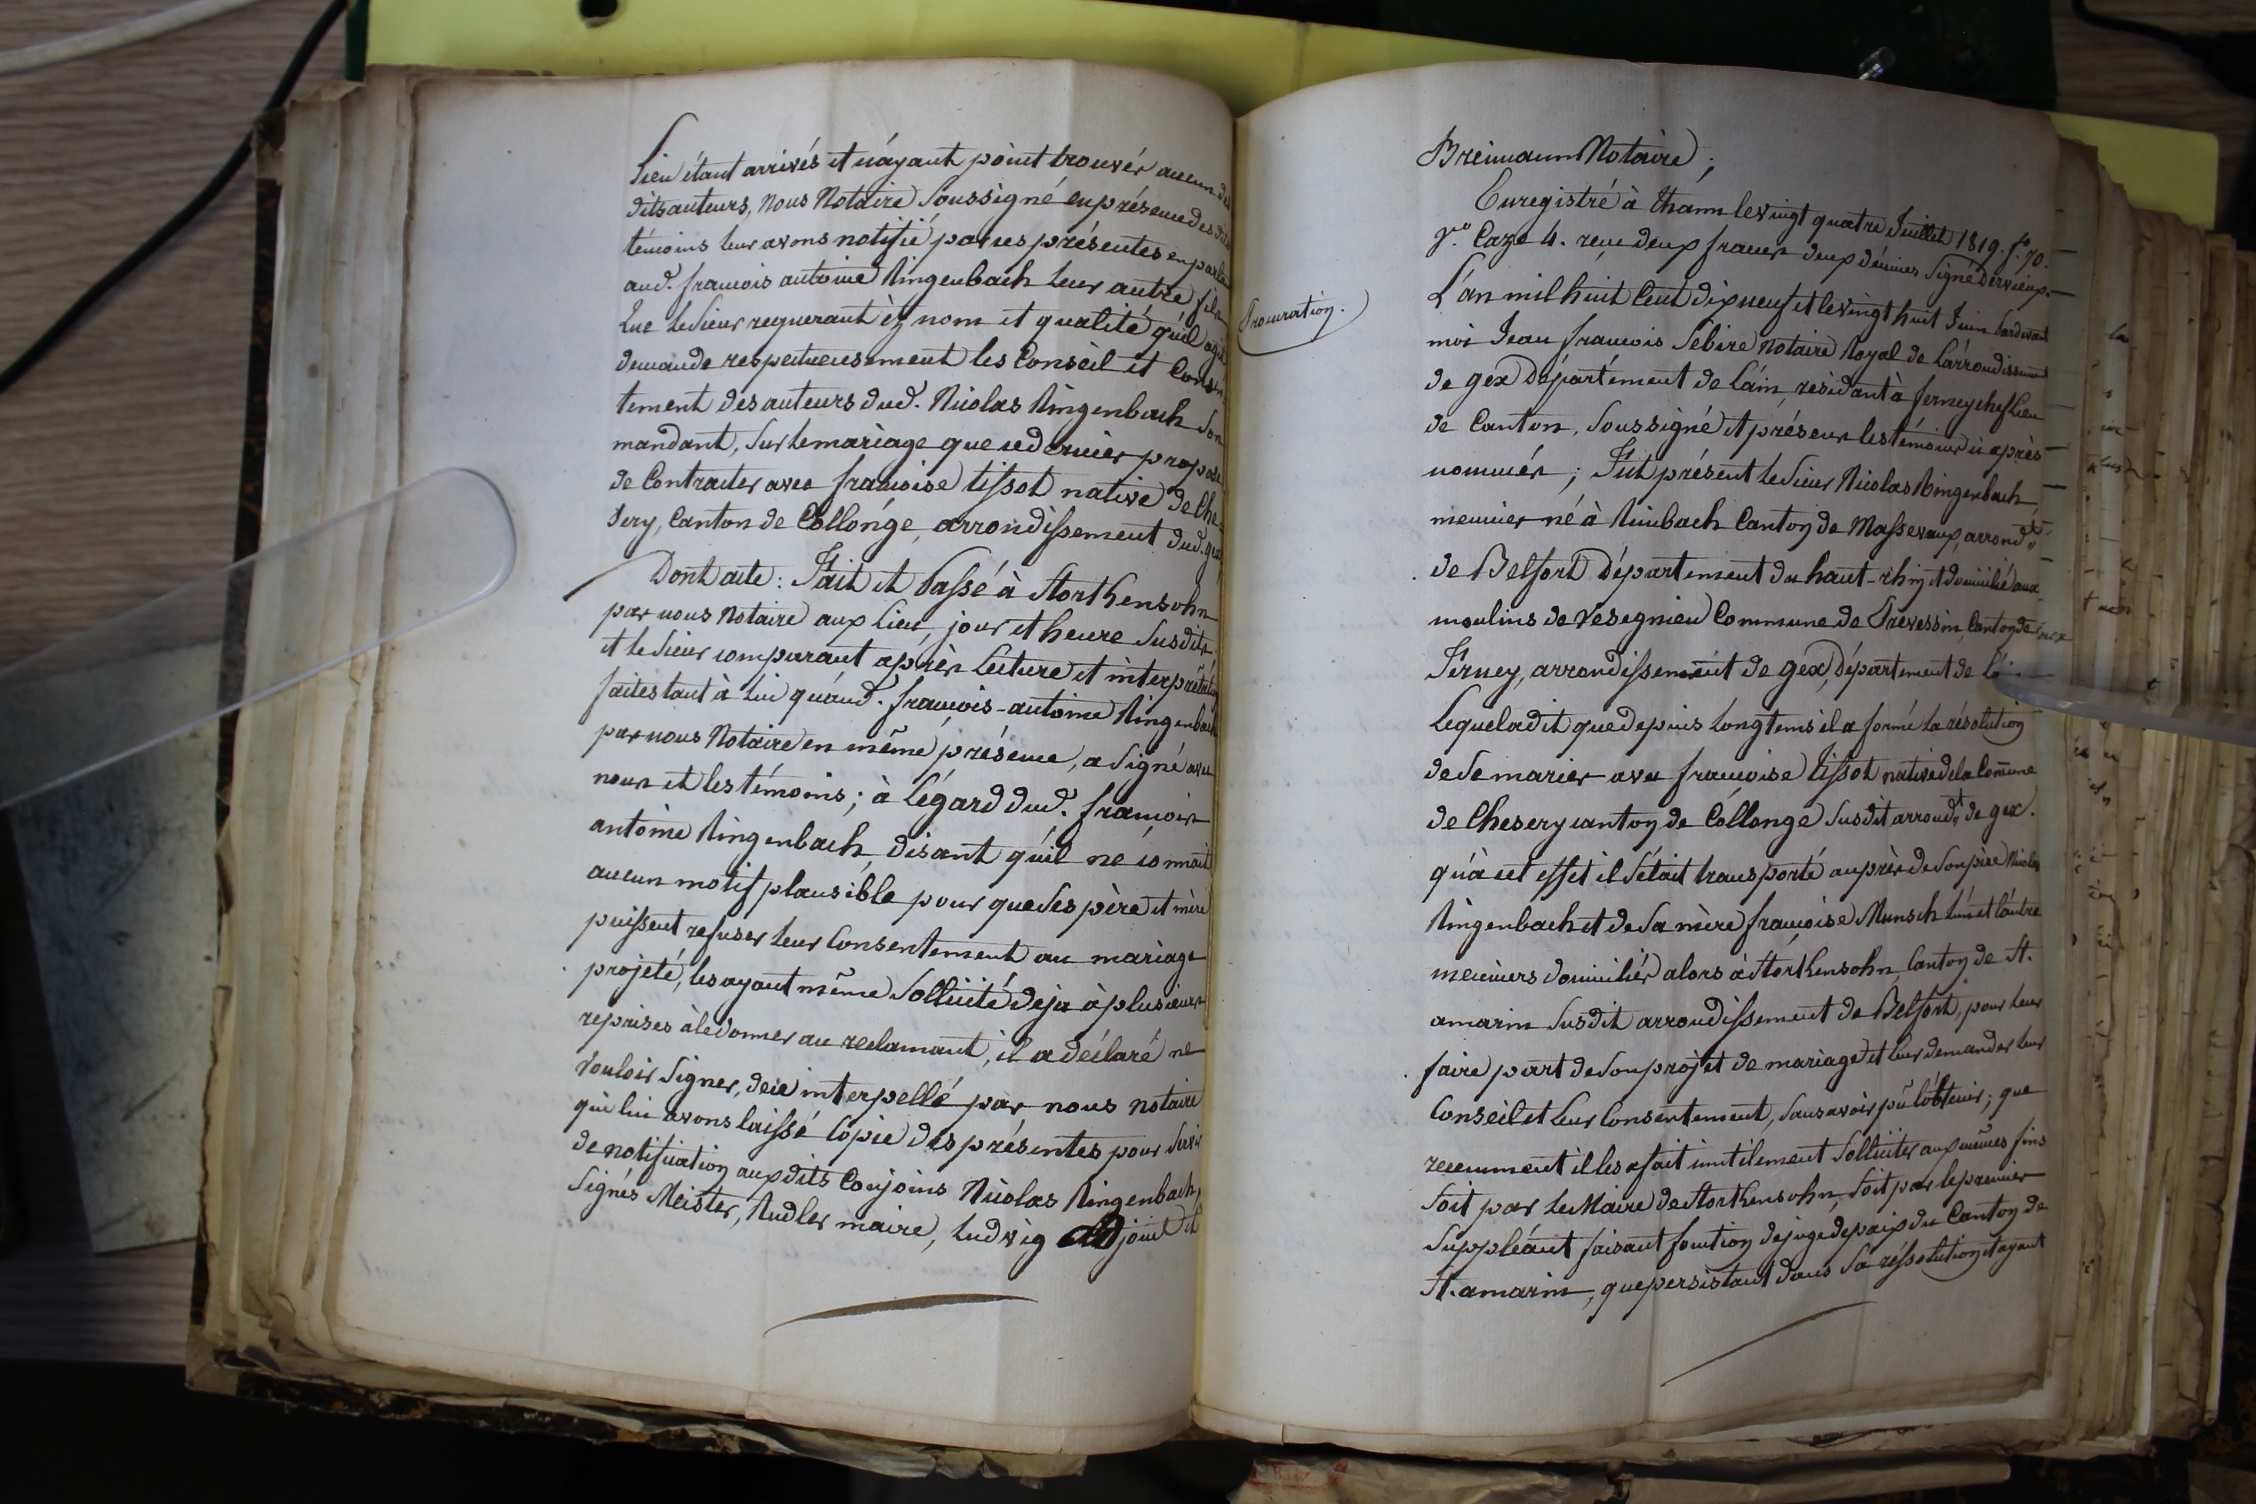 Lieu étant arrivés et n'ayant point trouvés aucun des
dits auteurs, nous Notaire Soussigné en présence des dits
témoins leur avons notifié par ces présentes en parlant
aud. françois antoine Ringenbach leur autre fils
Que le Sieur requerant èz nom et qualité qu'il agit
demande respectueusement les Conseil et Consen
tement des auteurs dud. Nicolas Ringenbach Son
mandant, Sur le mariage que ce dernier propose
de Contracter avec françoise tissot native de Che-
sery, Canton de Collonge, arrondissement dud. gex,
Dont acte: Fait et Passé à Storkensohn
par nous Notaire aux Lieu, jour et heure Susdits
et le Sieur comparant après Lecture et interprétation
faites tant à Lui qu'aud. françois-antoine Ringenbach
par nous Notaire en même présence, a Signé avec
nous et les témoins; à L'égard dud. françois
antoine Ringenbach, disant qu'il ne connait
aucun motif plausible pour que Ses père et mère
puissent refuser leur Consentement au mariage
projeté, les ayant même Sollicité deja à plusieurs
reprises à le donner au reclamant, il a déclaré ne
vouloir Signer, de ce interpellé par nous notaire
qui lui avons laissé Copie des présentes pour Servir
de notification aux dits Conjoins Nicolas Ringenbach,
Signés Meister, Rudler maire, Ludwig adjoint et
Breimann Notaire;
Enregistré à thann le vingt quatre Juillet 1819. fo. 70.
vo. Caze 4. reçu deux francs deux décimes Signé Dervieux.
Procuration.
L'an mil huit Cent dix neuf et le vingt huit Juin Pardevant
moi Jean françois Sebire Notaire Royal de L'arrondissement
de gex Département de L'ain, residant à ferney chef Lieu
de Canton, Soussigné et présens les témoins ci après
nommés; Fut présent le Sieur Nicolas Ringenbach,
meunier né à Rimbach Canton de Massevaux, arrondt.
de Belfort Département du haut-rhin et domicilié aux
moulins de Vesegnieu Commune de Prevessin, Canton de
Ferney, arrondissement de gex, Département de L'
Lequel a dit que depuis Longtems il a formé la résolution
de Se marier avec françoise Tissot native de la Comune
de Chesery canton de Collonge Susdit arrondt. de gex.
qu'à cet effet il S'était transporté auprès de Son père Nicolas
Ringenbach et de Sa mère françoise Munsch L'un et L'autre
meuniers domiciliés alors à Storkensohn, Canton de St.
amarin Susdit arrondissement de Belfort, pour leur
faire part de Son projet de mariage et leur demander leur
Conseil et leur Consentement, Sans avoir pû l'obtenir; que
recemment il les a fait inutilement Solliciter aux mêmes fins
Soit par Le Maire de Storkensohn, Soit par le premier
Suppléant faisant fonction de juge de paix du Canton de
St. amarin, que persistant dans Sa résolution et ayant